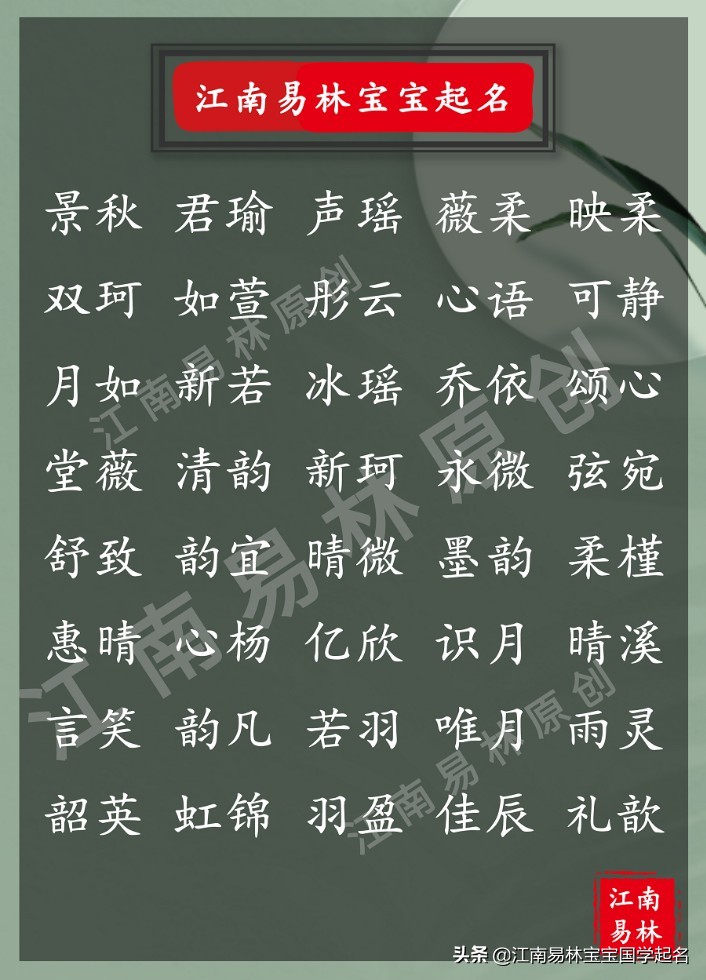 江南易林宝宝起名
景秋 君瑜 声瑶 薇柔 映柔
双珂 如萱 彤云 心语 可静
月如 新若 冰瑶 乔依 颂心
堂薇 清韵 新珂 永微 弦宛
舒致 韵宜 晴微 墨韵 柔槿
惠晴 心杨 亿欣 识月 晴溪
言笑 韵凡 若羽 唯月 雨灵
韶英 虹锦 羽盈 佳辰 礼歆
江南易林原创
江南易林原创
江南易林原创
江南
易林
头条 @江南易林宝宝国学起名